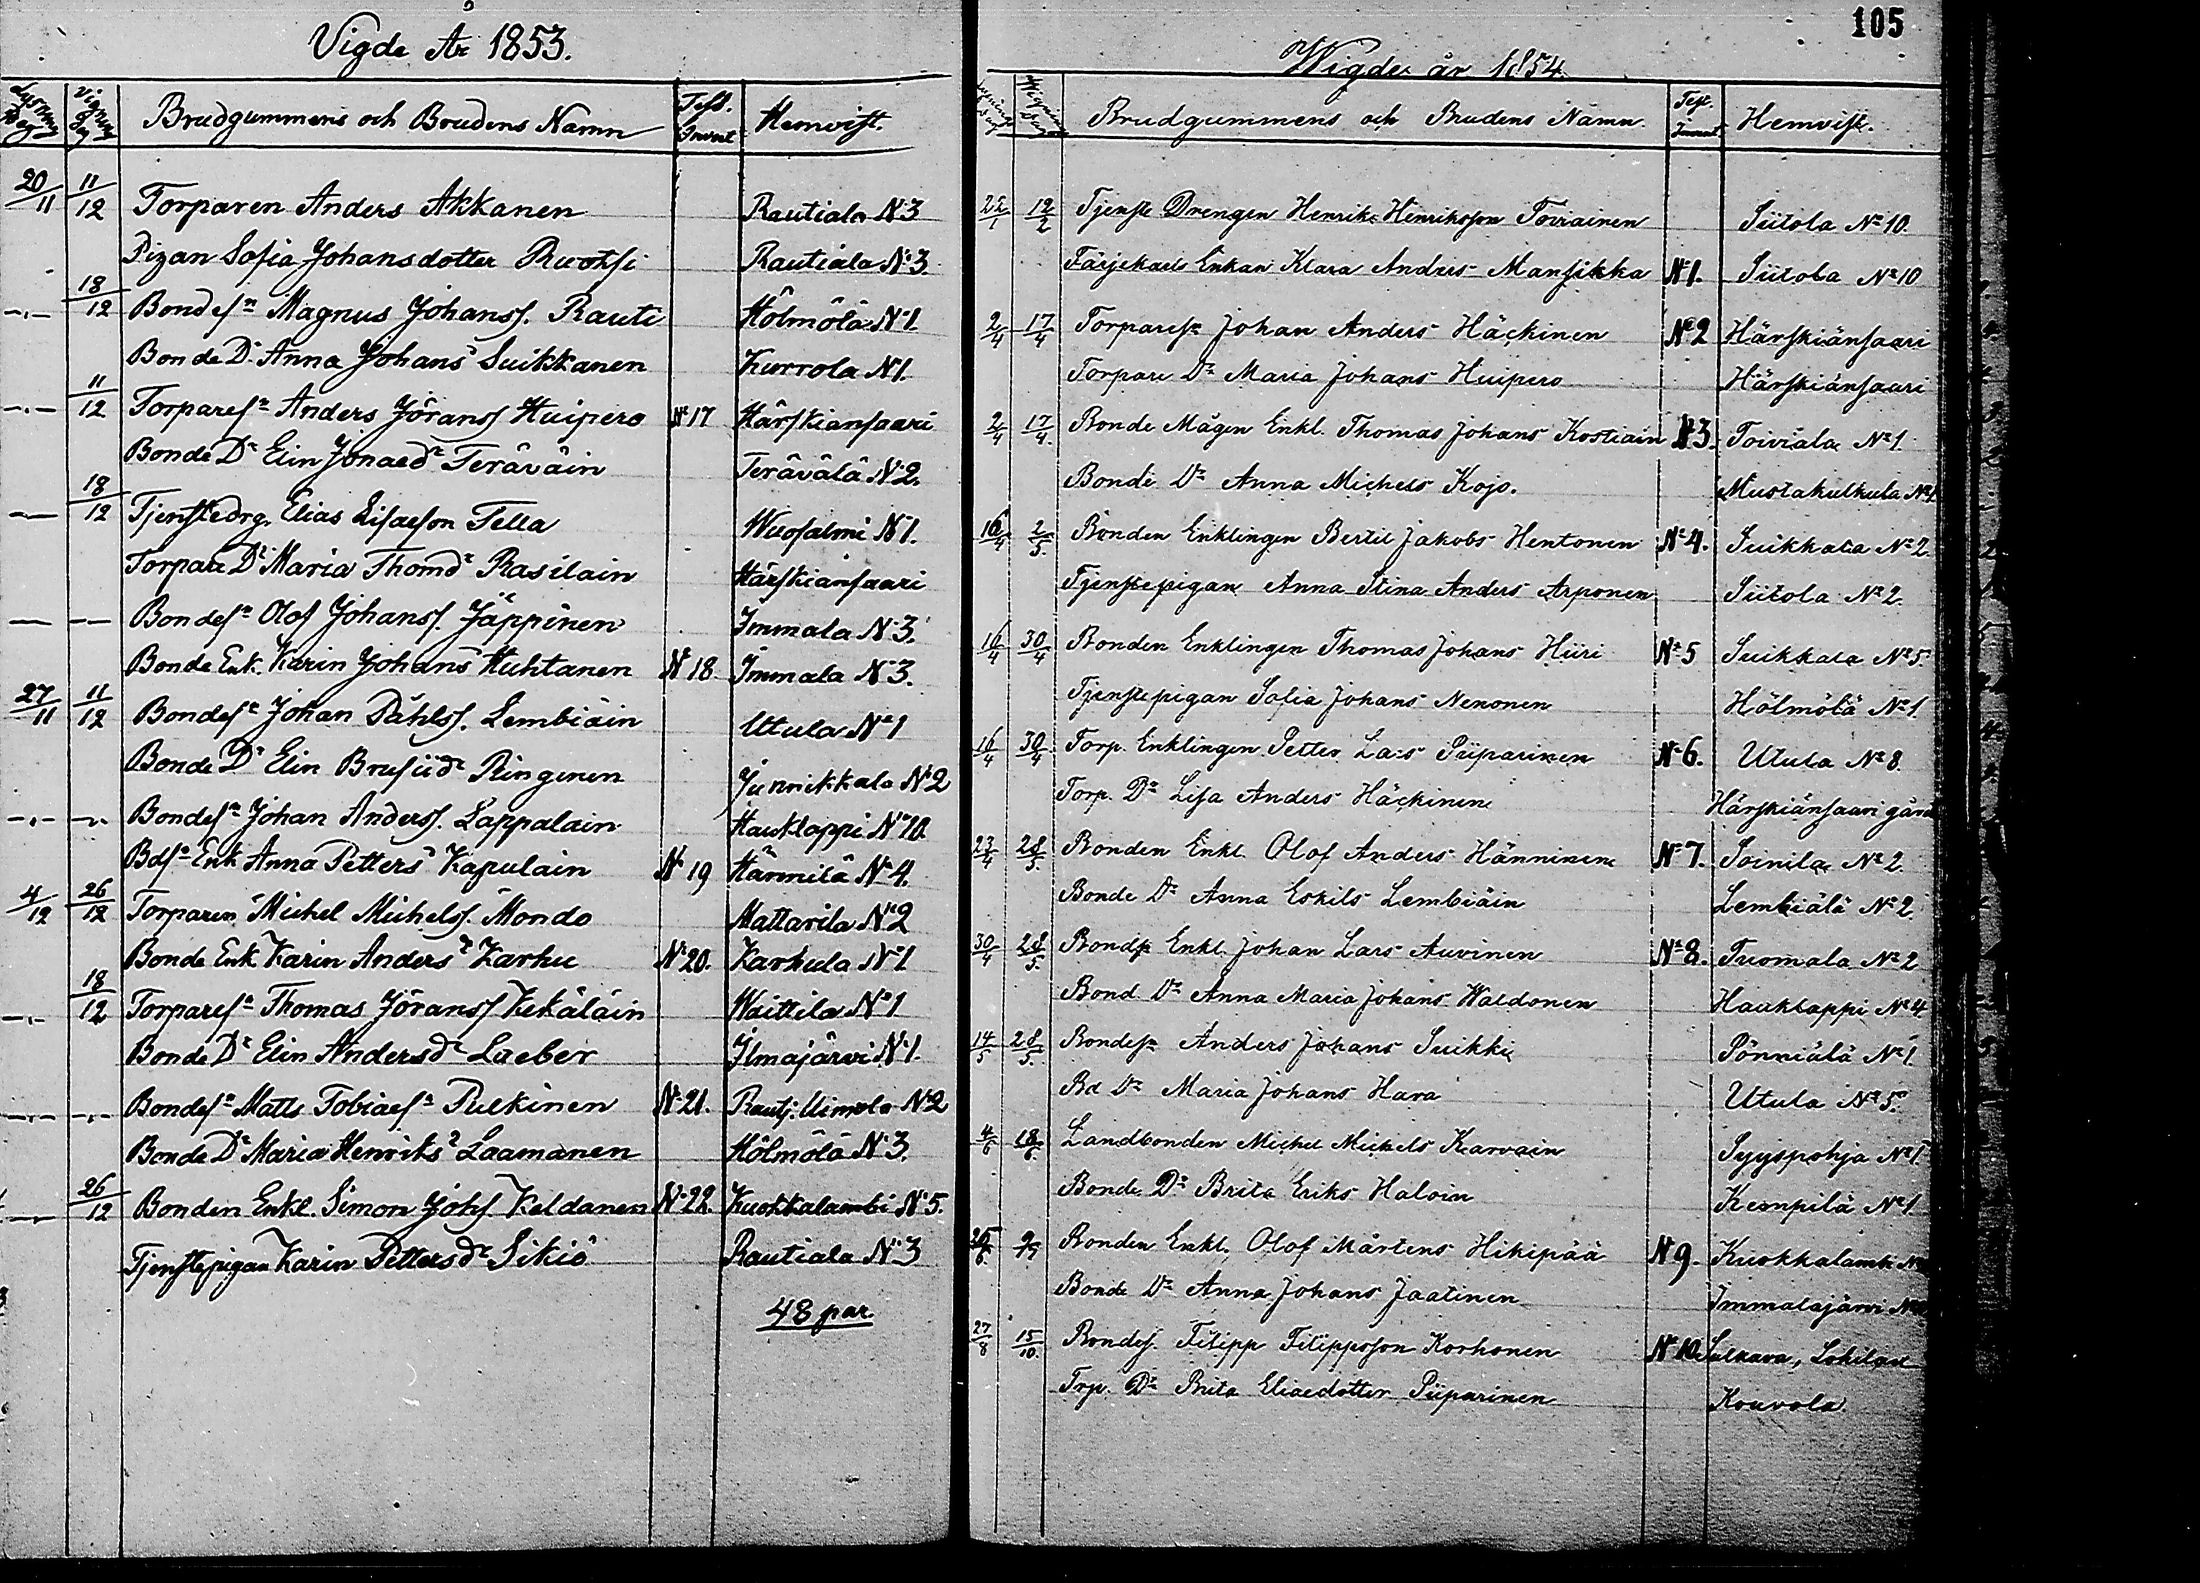 Vigde År 1853.
Lysnings Dag Vignings Dag Brudgummens och Brudens Namn Test. Invent. Hemvist.
20/11 11/12 Torparen Anders Akkanen Rautiala N:3
Pigan Sofia Johansdotter Ruotsi Rautiala N:3
-"- 18/12 Bondesn Magnus Johanss. Rauti Hölmölä N:1.
Bonde Dr Anna Johansdr Suikkanen Kurrola N:1.
-"- 11/12 Torparesn Anders Jöranss Huipero N:17 Härskiansaari
Bonde Dr Elin Jonaedr Teräväin Terävälä N:2.
— 18/12 Tjenstedrg. Elias Eisaesson Tella Wuosalmi N:1.
Torpare Dr Maria Thomdr Rasilain Härskiansaari
— — Bondesn Olof Johanss. Jäppinen Immala N:3.
Bonde Enk. Karin Johans Huhtanen N:18. Immala N:3.
27/11 11/12 Bondesn Johan Påhlss. Lembiäin Utula No 1
Bonde Dr Elin Brusiidr Ringinen Junnikkala N:2
-"- -"- Bondesn Johan Anderss. Lappalain Hauklappi N:10.
Bdsn Enk Anna Petters Kapulain N:19 Härmilä N:4.
4/12 26/12 Torparen Michel Michelss. Mondo Mattarila N:2
Bonde Enk Karin Andersdr Karhu N:20. Karhula N:1
-"- 18/12 Torparesn Thomas Jöranss Kekäläin Waittila No 1
Bonde Dr Elin Andersdr Laeber Ilmajärvi N:1.
-"- -"- Bondesn Matts Tobiaesn Pulkinen N:21. Rautj. Uimola N:2
Bonde Dr Maria Henriksdr Laamanen Hölmölä N:3.
— 26/12 Bonden Enkl. Simon Johs. Keldanen N:22. Kuokkalambi N:5.
Tjenstepigan Karin Pettersdr Sikiö Rautiala N:3
48 par.
105
Wigde år 1854
Lysnings Dag Wignings Dag Brudgummens och Brudens Namn. Test. Invent. Hemvist.
22/1 12/2 Tjenste Drengen Henrik Henriksson Torvainen Siitola No 10.
Färjekarls Enkan Klara Anders Mansikka No 1. Siitola No 10
2/4 17/4 Torparesn Johan Anders Häckinen No 2 Härskiänsaari
Torpare Dr Maria Johans Huipero Härskiänsaari
2/4 17/4. Bonde Mågen Enkl. Thomas Johans Kostiain No 3. Toiviala No 1.
Bonde Dr Anna Michels Kojo. Mustakulkula No 1
16/4 2/5. Bonden Enklingen Bertil Jakobs Hentonen No 4. Suikkala No 2.
Tjenstepigan Anna Stina Anders Arponen Siitola No 2.
16/4 30/4 Bonden Enklingen Thomas Johans Hiiri No 5 Suikkala No 5.
Tjenstepigan Sofia Johans Nenonen Hölmölä No 1.
16/4 30/4 Torp. Enklingen Petter Lars Piiparinen No 6. Utula No 8.
Torp. Dr Lisa Anders Häckinen Härskiänsaari gård
23/4 28/5. Bonden Enkl. Olof Anders Hänninen No 7. Soinila No 2.
Bonde Dr Anna Eskils Lembiäin Lembiälä No 2
30/4 28/5. Bondesn Enkl. Johan Lars Auvinen No 8. Tuomala No 2
Bond. Dr Anna Maria Johans Waldonen Hauklappi No 4
14/5 28/5. Bondesn Anders Johans Suikki Pönniälä No 1.
Bd Dr Maria Johans Hara Utula No 5.
4/6 18/6. Landbonden Michel Michels Karvain Syyspohja No 1.
Bonde Dr Brita Eriks Haloin Kempilä No 1
25/6. 9/7 Bonden Enkl. Olof Mårtens Hikipää No 9. Kuokkalambi No
Bonde Dr Anna Johans Jaatinen Immalajärvi No
27/8 15/10. Bondes. Filipp Filippsson Korhonen No 10. Sulkava, Lohilax
Trp. Dr Brita Eliaedotter Piiparinen Kouvola.